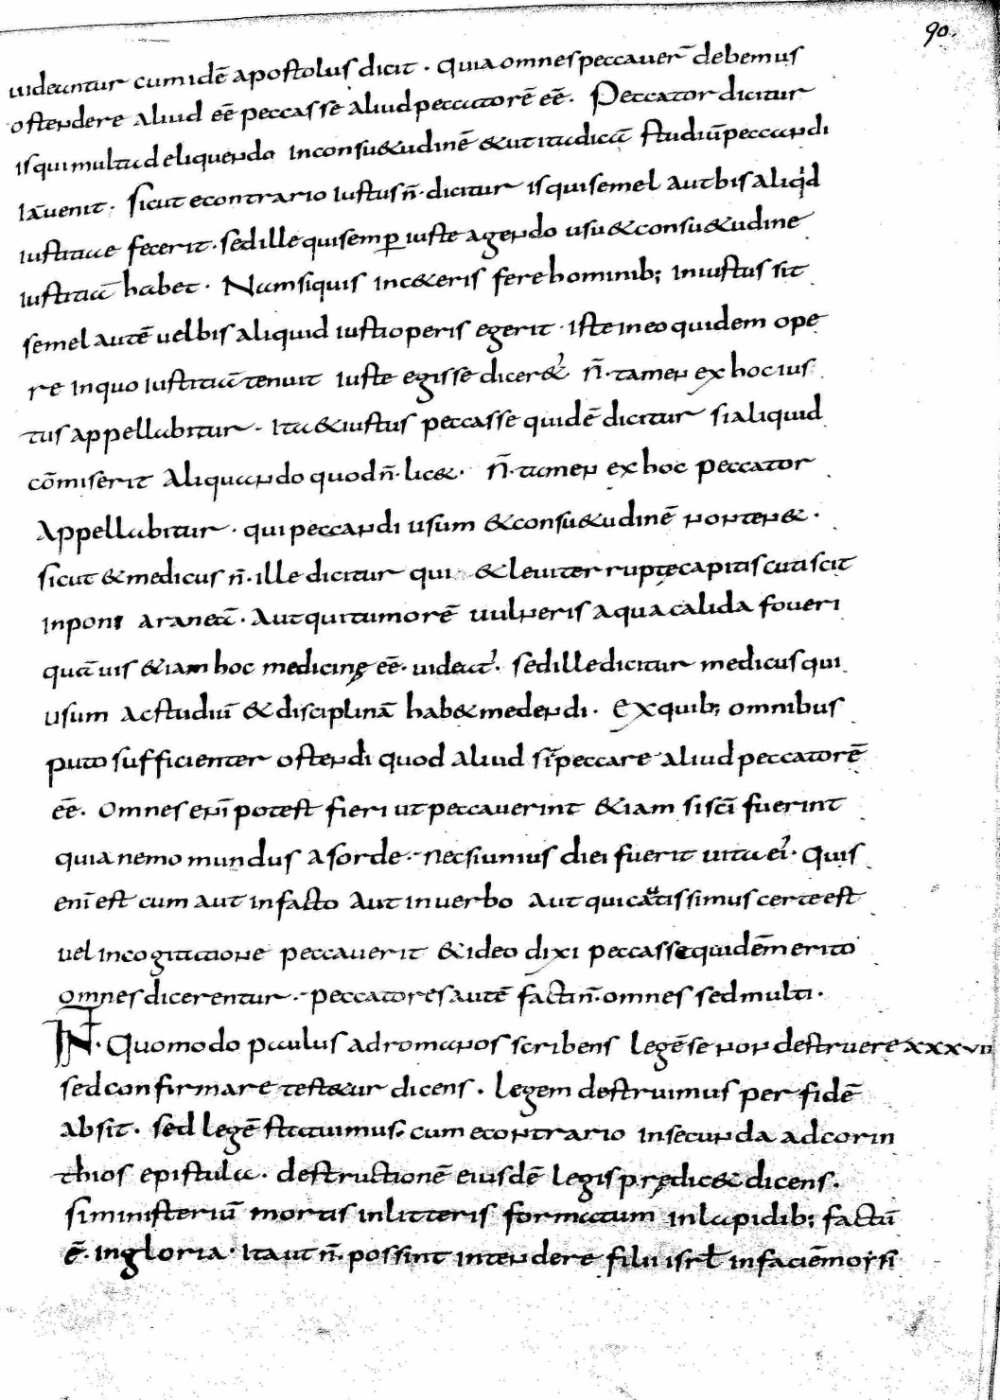 90.
uideantur cum idē apostolus dicit · quia omnes peccauer̄ debemus
ostendere aliud eē peccasse aliud peccatorē eē · Peccator dicitur
is qui multa delinquendo in consu&udinē &ut ita dicā studiū peccandi
iā uenit · sicut econtrario iustus n̄ · dicitur is qui semel aut bis aliq'd
iustitiae fecerit · sed ille qui semp̲ iuste agendo usu & consu&udine
iustitiā habet · Nam si quis inc&eris fere hominib; iniustus sit
semel autē uel bis aliquid iusti operis egerit · iste in eo quidem ope
re in quo iustitiā tenuit iuste egisse dicer&' n̄ · tamen ex hoc ius
tus appellabitur · ita & iustus peccasse quidē dicitur si aliquid
cōmiserit aliquando quod n̄ · lic& · n̄ · tamen ex hoc peccator
appellabitur · qui peccandi usum & consu&udinē non ten& ·
sicut & medicus n̄ · ille dicitur qui & leuiter ruptę capitis cuti scit
inponi araneā · aut qui tumorē uulneris aqua calida foueri
quāuis &iam hoc medicinę eē · uideat' · sed ille dicitur medicus qui
usum ac studiū & disciplinā hab& medendi · Ex quib; omnibus
puto sufficienter ostendi quod aliud sit peccare aliud peccatorē
eē · omnes enī potest fieri ut peccauerint &iam si sc̄i fuerint
quia nemo mundus a sorde · nec si unius diei fuerit uita ei' · quis
enī est cum aut in facto aut in uerbo aut qui cautissimus certe est
uel in cogitatione peccauerit & ideo dixi peccasse quidē merito
omnes dicerentur · peccatores autē facti n̄ · omnes sed multi ·
IN̄T · Quomodo paulus ad romanos scribens legē se non destruere xxxvii
sed confirmare test&ur dicens · legem destruimus per fidē
absit · sed legē statuimus · cum econtrario in secunda ad corin
thios epistula · destructionē eiusdē legis prędic& dicens ·
si ministeriū mortis in litteris formatum in lapidib; factū
ē · in gloria · ita ut n̄ · possint intendere filii isrł in faciē moysi